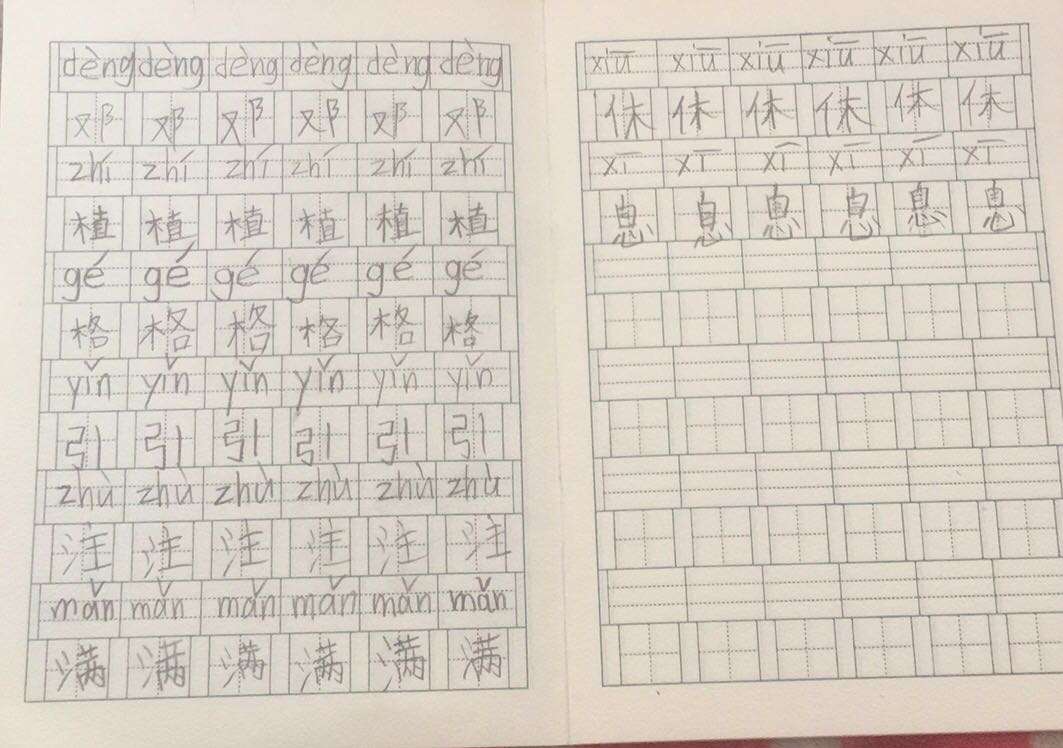 dèng dèng dèng dèng dèng dèng
邓 邓 邓 邓 邓 邓
zhí zhí zhí zhí zhí zhí
植 植 植 植 植 植
gé gé gé gé gé gé
格 格 格 格 格 格
yǐn yǐn yǐn yǐn yǐn yǐn
引 引 引 引 引 引
zhù zhù zhù zhù zhù zhù
注 注 注 注 注 注
mǎn mǎn mǎn mǎn mǎn mǎn
满 满 满 满 满 满
xiū xiū xiū xiū xiū xiū
休 休 休 休 休 休
xī xī xī xī xī xī
息 息 息 息 息 息